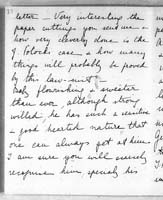 letter - Very interesting the
paper cuttings you send me -
how very cleverly done is the
case & how many
things will probably be proved
by this law-suit -
Baby flourishing & sweeter
than ever, although strong
willed, he has such a sensitive
& good hearted nature that
one can always get at him
I am sure you will surely
recognise him specially his